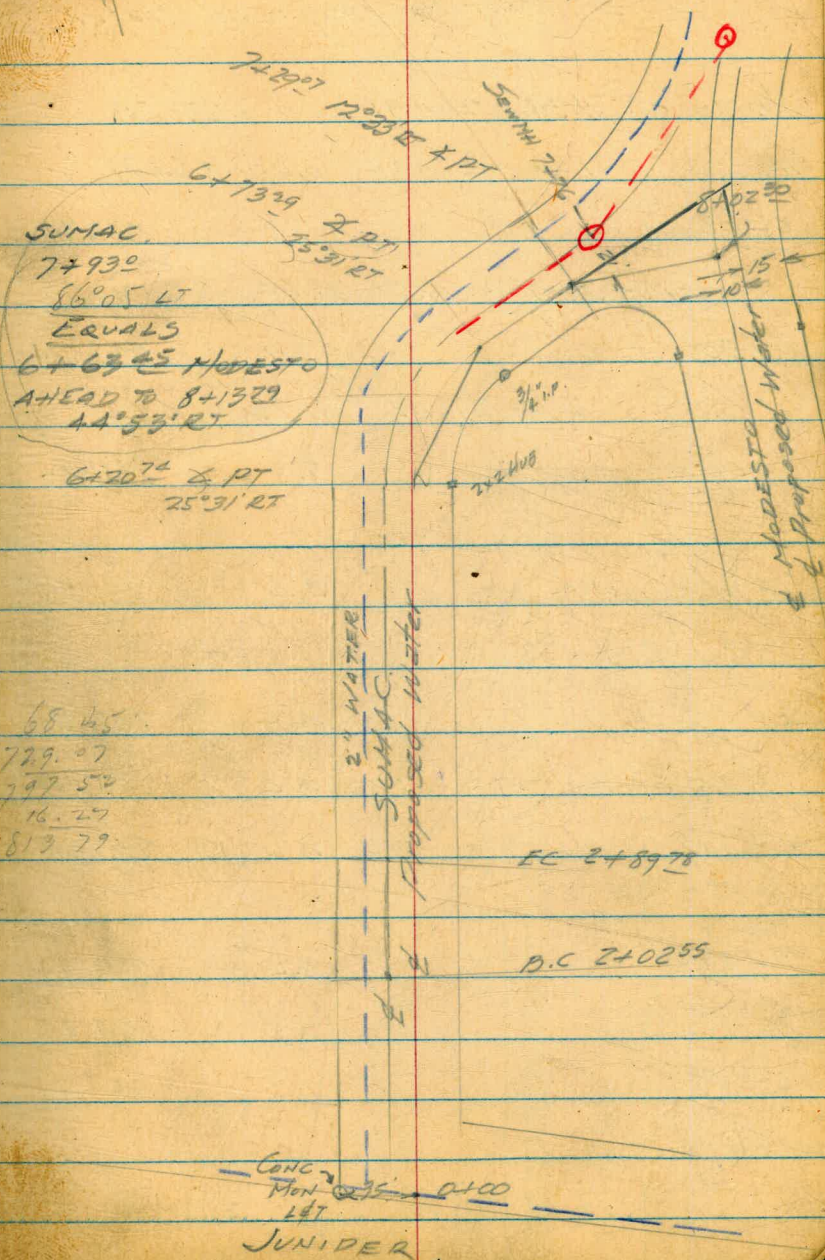 7+29⁰⁷ 12°33' RT ∡ PT
SEWMH 7+76
6+73²⁹ ∡ PT
25°31' RT
8+02³⁰
SUMAC
7+93⁰
86°05 LT
EQUALS
6+63⁴⁵ MODESTO
AHEAD TO 8+13⁷⁹
44°53' RT
15
10
3/4" I.P.
6+20⁷⁴ ∡ PT
25°31' RT
2x2 HUB
℄ MODESTO
℄ Proposed Water
2" WATER
℄ SUMAC
℄ Proposed Water
68.45
729.07
797 52
16.27
813 79
EC 2+89⁷⁸
B.C 2+02⁵⁵
CONC
MON
L&T
0+00
JUNIPER